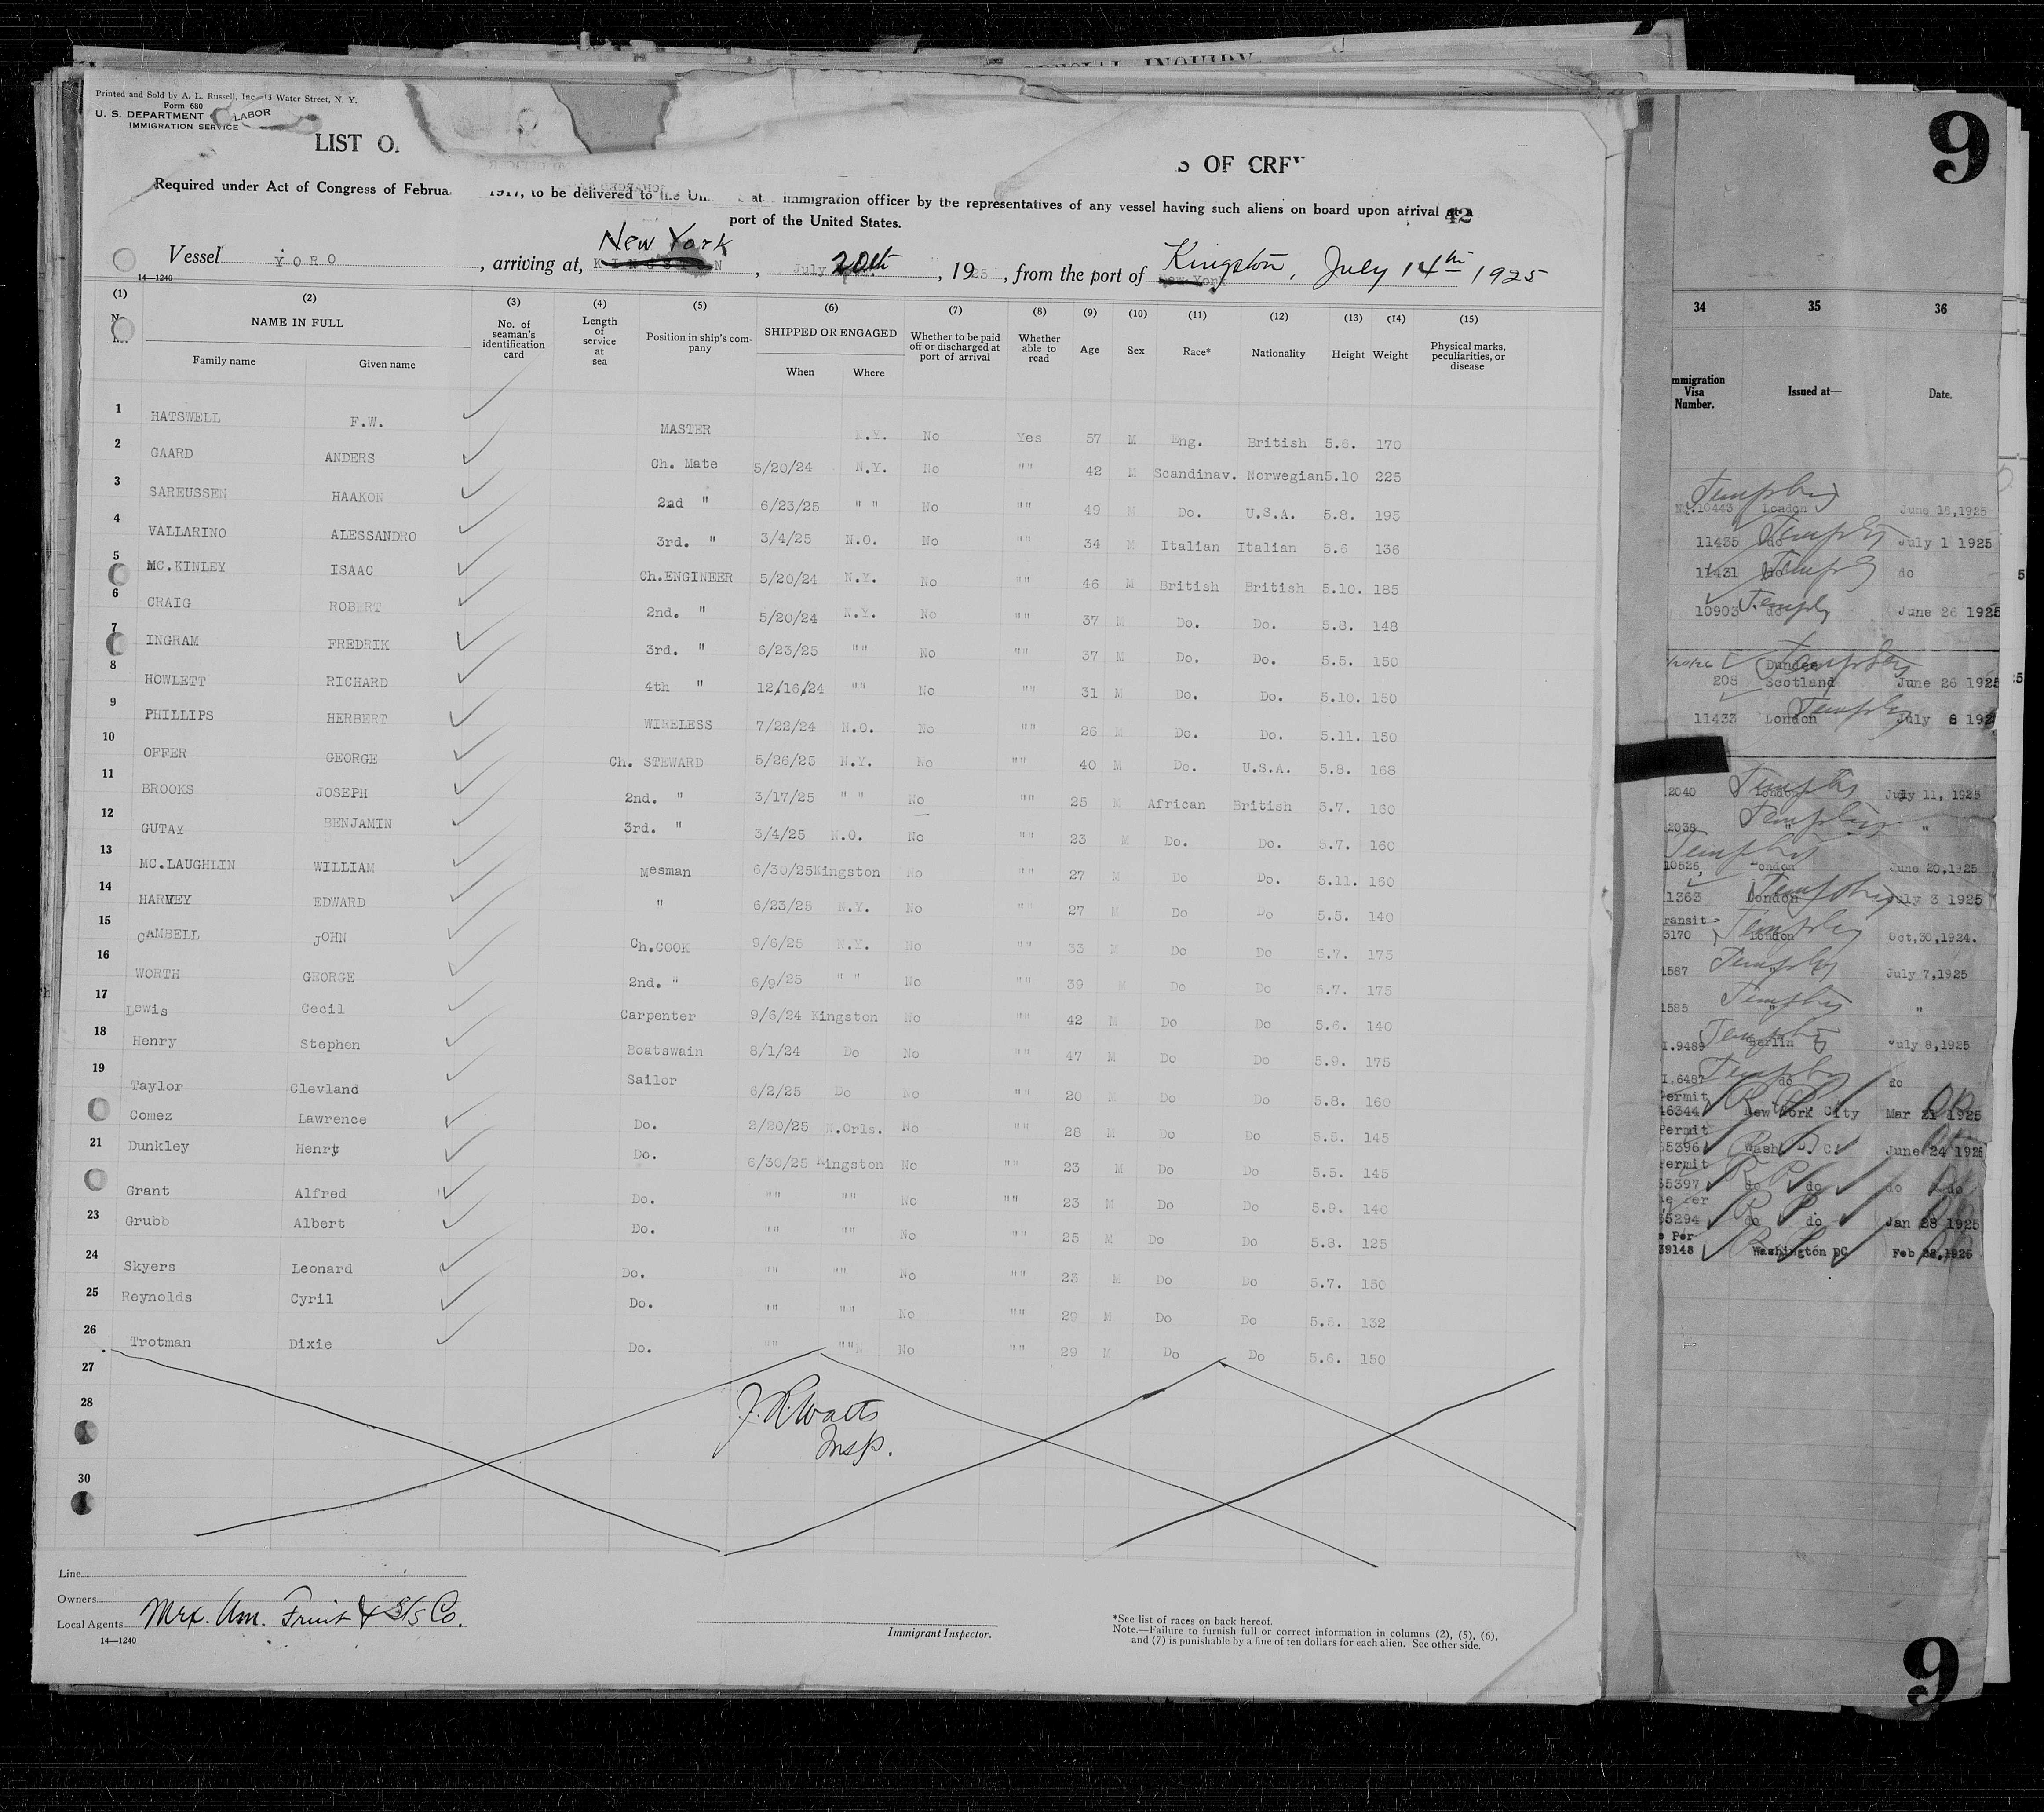 SPECIAL INQUIRY
Printed and Sold by A. L. Russell, Inc 13 Water Street, N. Y.
Form 680
U. S. DEPARTMENT LABOR
IMMIGRATION SERVICE
LIST O S OF CREW
Required under Act of Congress of Februa 1917, to be delivered to the Un at immigration officer by the representatives of any vessel having such aliens on board upon arrival at a
42
port of the United States.
New York
Vessel YORO, arriving at, KINGSTON, July 20th, 1925, from the port of New York Kingston, July 14th 1925
14—1240
(1) (2) (3) (4) (5) (6) (7) (8) (9) (10) (11) (12) (13) (14) (15)
NAME IN FULL
Family name Given name
No. of seaman's identification card
Length of service at sea
Position in ship's company
SHIPPED OR ENGAGED
When Where
Whether to be paid off or discharged at port of arrival
Whether able to read
Age Sex Race* Nationality Height Weight
Physical marks, peculiarities, or disease
1 HATSWELL F.W. MASTER N.Y. No Yes 57 M Eng. British 5.6. 170
2 GAARD ANDERS Ch. Mate 5/20/24 N.Y. No "" 42 M Scandinav. Norwegian 5.10 225
3 SAREUSSEN HAAKON 2nd " 6/23/25 " " No "" 49 M Do. U.S.A. 5.8. 195
4 VALLARINO ALESSANDRO 3rd. " 3/4/25 N.O. No "" 34 M Italian Italian 5.6 136
5 MC.KINLEY ISAAC Ch.ENGINEER 5/20/24 N.Y. No "" 46 M British British 5.10. 185
6 CRAIG ROBERT 2nd. " 5/20/24 N.Y. No "" 37 M Do. Do. 5.8. 148
7 INGRAM FREDRIK 3rd. " 6/23/25 "" No "" 37 M Do. Do. 5.5. 150
8 HOWLETT RICHARD 4th " 12/16/24 "" No "" 31 M Do. Do. 5.10. 150
9 PHILLIPS HERBERT WIRELESS 7/22/24 N.O. No "" 26 M Do. Do. 5.11. 150
10 OFFER GEORGE Ch. STEWARD 5/26/25 N.Y. No "" 40 M Do. U.S.A. 5.8. 168
11 BROOKS JOSEPH 2nd. " 3/17/25 " " No "" 25 M African British 5.7. 160
12 GUTAY BENJAMIN 3rd. " 3/4/25 N.O. No "" 23 M Do. Do. 5.7. 160
13 MC.LAUGHLIN WILLIAM Mesman 6/30/25 Kingston No "" 27 M Do Do. 5.11. 160
14 HARVEY EDWARD " 6/23/25 N.Y. No "" 27 M Do Do 5.5. 140
15 CAMBELL JOHN Ch.COOK 9/6/25 N.Y. No "" 33 M Do Do 5.7. 175
16 WORTH GEORGE 2nd. " 6/9/25 " " No "" 39 M Do Do 5.7. 175
17 Lewis Cecil Carpenter 9/6/24 Kingston No "" 42 M Do Do 5.6. 140
18 Henry Stephen Boatswain 8/1/24 Do No "" 47 M Do Do 5.9. 175
19 Taylor Clevland Sailor 6/2/25 Do No "" 20 M Do Do 5.8. 160
Comez Lawrence Do. 2/20/25 N.Orls. No "" 28 M Do Do 5.5. 145
21 Dunkley Henry Do. 6/30/25 Kingston No "" 23 M Do Do 5.5. 145
Grant Alfred Do. "" "" No "" 23 M Do Do 5.9. 140
23 Grubb Albert Do. "" "" No "" 25 M Do Do 5.8. 125
24 Skyers Leonard Do. "" "" No "" 23 M Do Do 5.7. 150
25 Reynolds Cyril Do. "" "" No "" 29 M Do Do 5.6. 132
26 Trotman Dixie Do. "" "" No "" 29 M Do Do 5.6. 150
27
28
30
J. R. Watts
Insp.
Line
Owners
Local Agents Mex. Am. Fruit & S/S Co.
14—1240
Immigrant Inspector.
*See list of races on back hereof.
Note.—Failure to furnish full or correct information in columns (2), (5), (6),
and (7) is punishable by a fine of ten dollars for each alien. See other side.
9
34 35 36
mmigration Visa Number. Issued at— Date.
No.10443 London June 18,1925
11435 do July 1 1925
11431 do do
10903 do June 26 1925
Dundee
208 Scotland June 26 1925
11433 London July 8 192
2040 London July 11, 1925
2038 " "
10526, London June 20,1925
1363 London July 3 1925
ransit
3170 London Oct,30,1924.
1587 " July 7,1925
1585 " "
I.9489 Berlin July 8,1925
I.6487 do do
Permit
46344 New York City Mar 21 1925
Permit
55396 Wash D. C. June 24 1925
Permit
55397 do do do do
e Per
55294 do do Jan 28 1925
e Per
39148 Washington DC Feb 28,1925
9